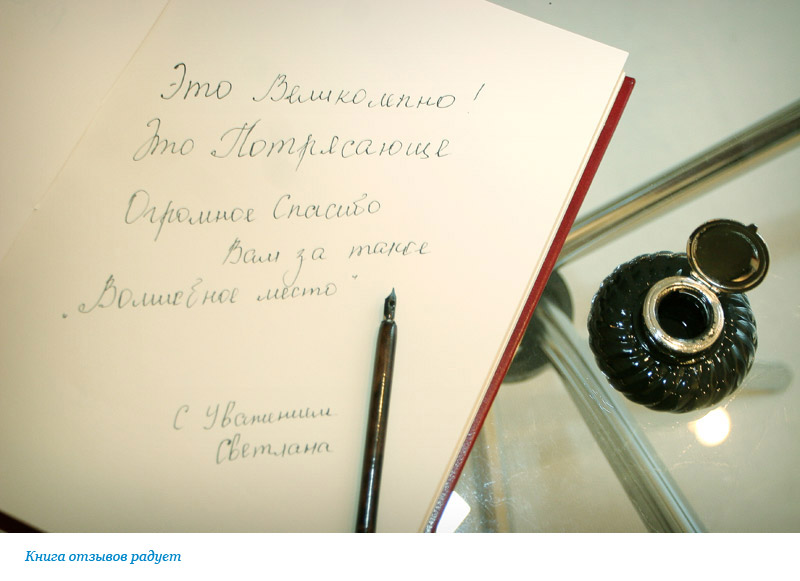 Это Великолепно!
Это Потрясающе
Огромное Спасибо
Вам за такое
„Волшебное место"
С Уважением
Светлана
Книга отзывов радует